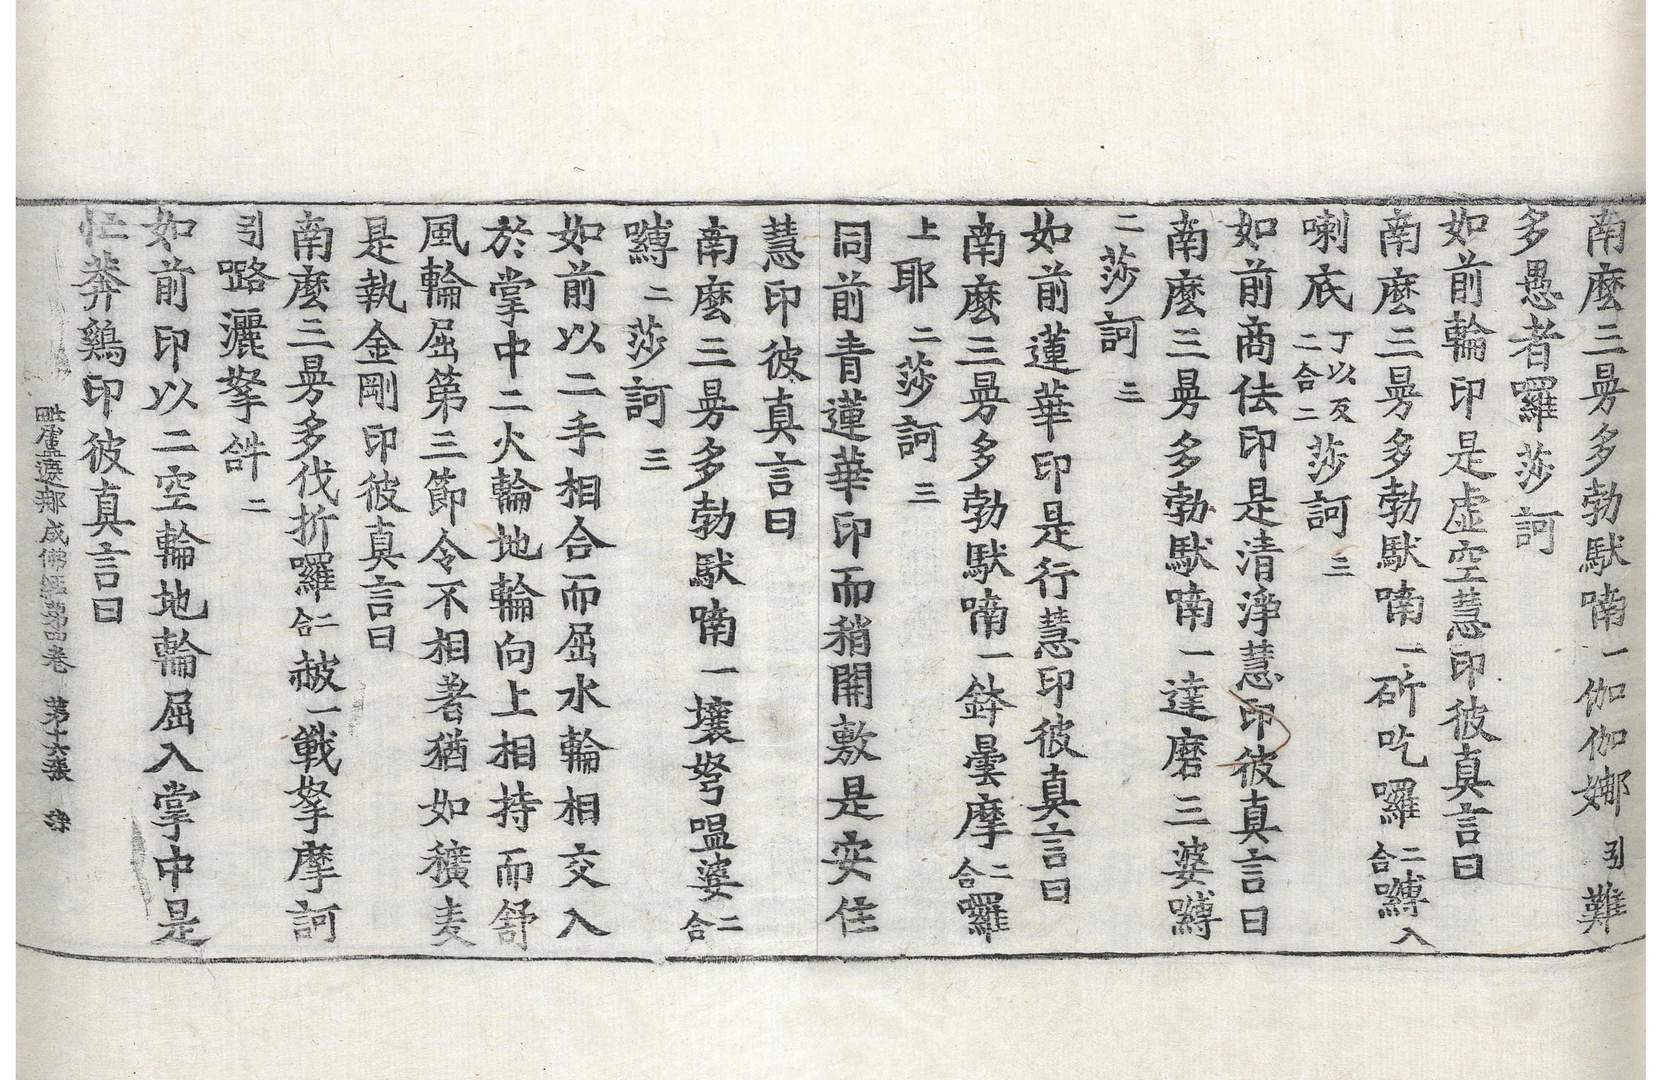 南麼三曼多勃馱喃一伽伽娜引難
多愚者囉莎訶
如前輪印是虛空慧印彼真言曰
南麼三曼多勃馱喃一斫吃囉二合嚩入
喇底丁以反二合二莎訶三
如前商佉印是清淨慧印彼真言曰
南麼三曼多勃馱喃一達磨三婆嚩
二莎訶三
如前蓮華印是行慧印彼真言曰
南麼三曼多勃馱喃一鉢曇摩二合囉
上耶二莎訶三
同前青蓮華印而稍開敷是安住
慧印彼真言曰
南麼三曼多勃馱喃一壤弩嗢婆二合
嚩二莎訶三
如前以二手相合而屈水輪相交入
於掌中二火輪地輪向上相持而舒
風輪屈第三節令不相著猶如穬麦
是執金剛印彼真言曰
南麼三曼多伐折囉二合赧一戰拏摩訶
引𡀔灑拏𤙖二
如前印以二空輪地輪屈入掌中是
忙莽鷄印彼真言曰
毗盧遮那成佛經第四卷 第十六張 染